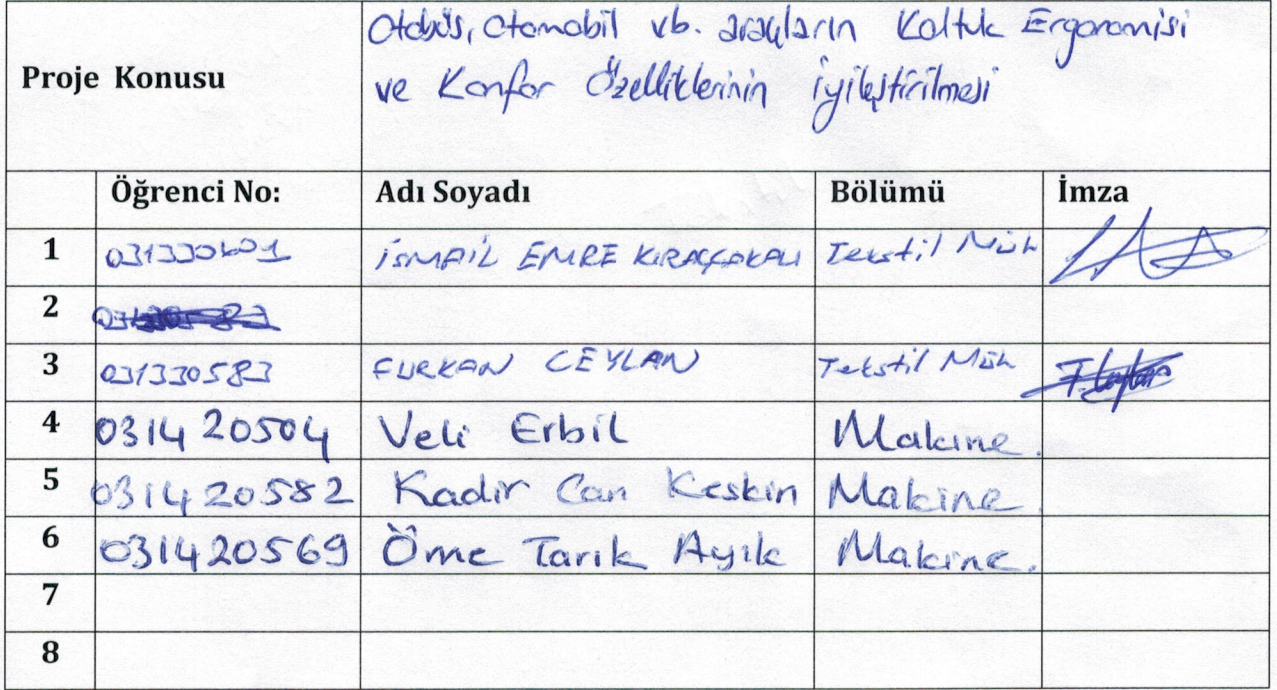 Proje Konusu
Otobüs, Otomobil vb. araçların Koltuk Ergonomisi
ve Konfor Özelliklerinin İyileştirilmesi
Öğrenci No: Adı Soyadı Bölümü İmza
1 031330601 İSMAİL EMRE Tekstil Müh
2
3 031330583 FURKAN CEYLAN Tekstil Müh
4 031420504 Veli Erbil Makine.
5 031420582 Kadir Can Keskin Makine
6 031420569 Öme Tarık Ayık Makine.
7
8